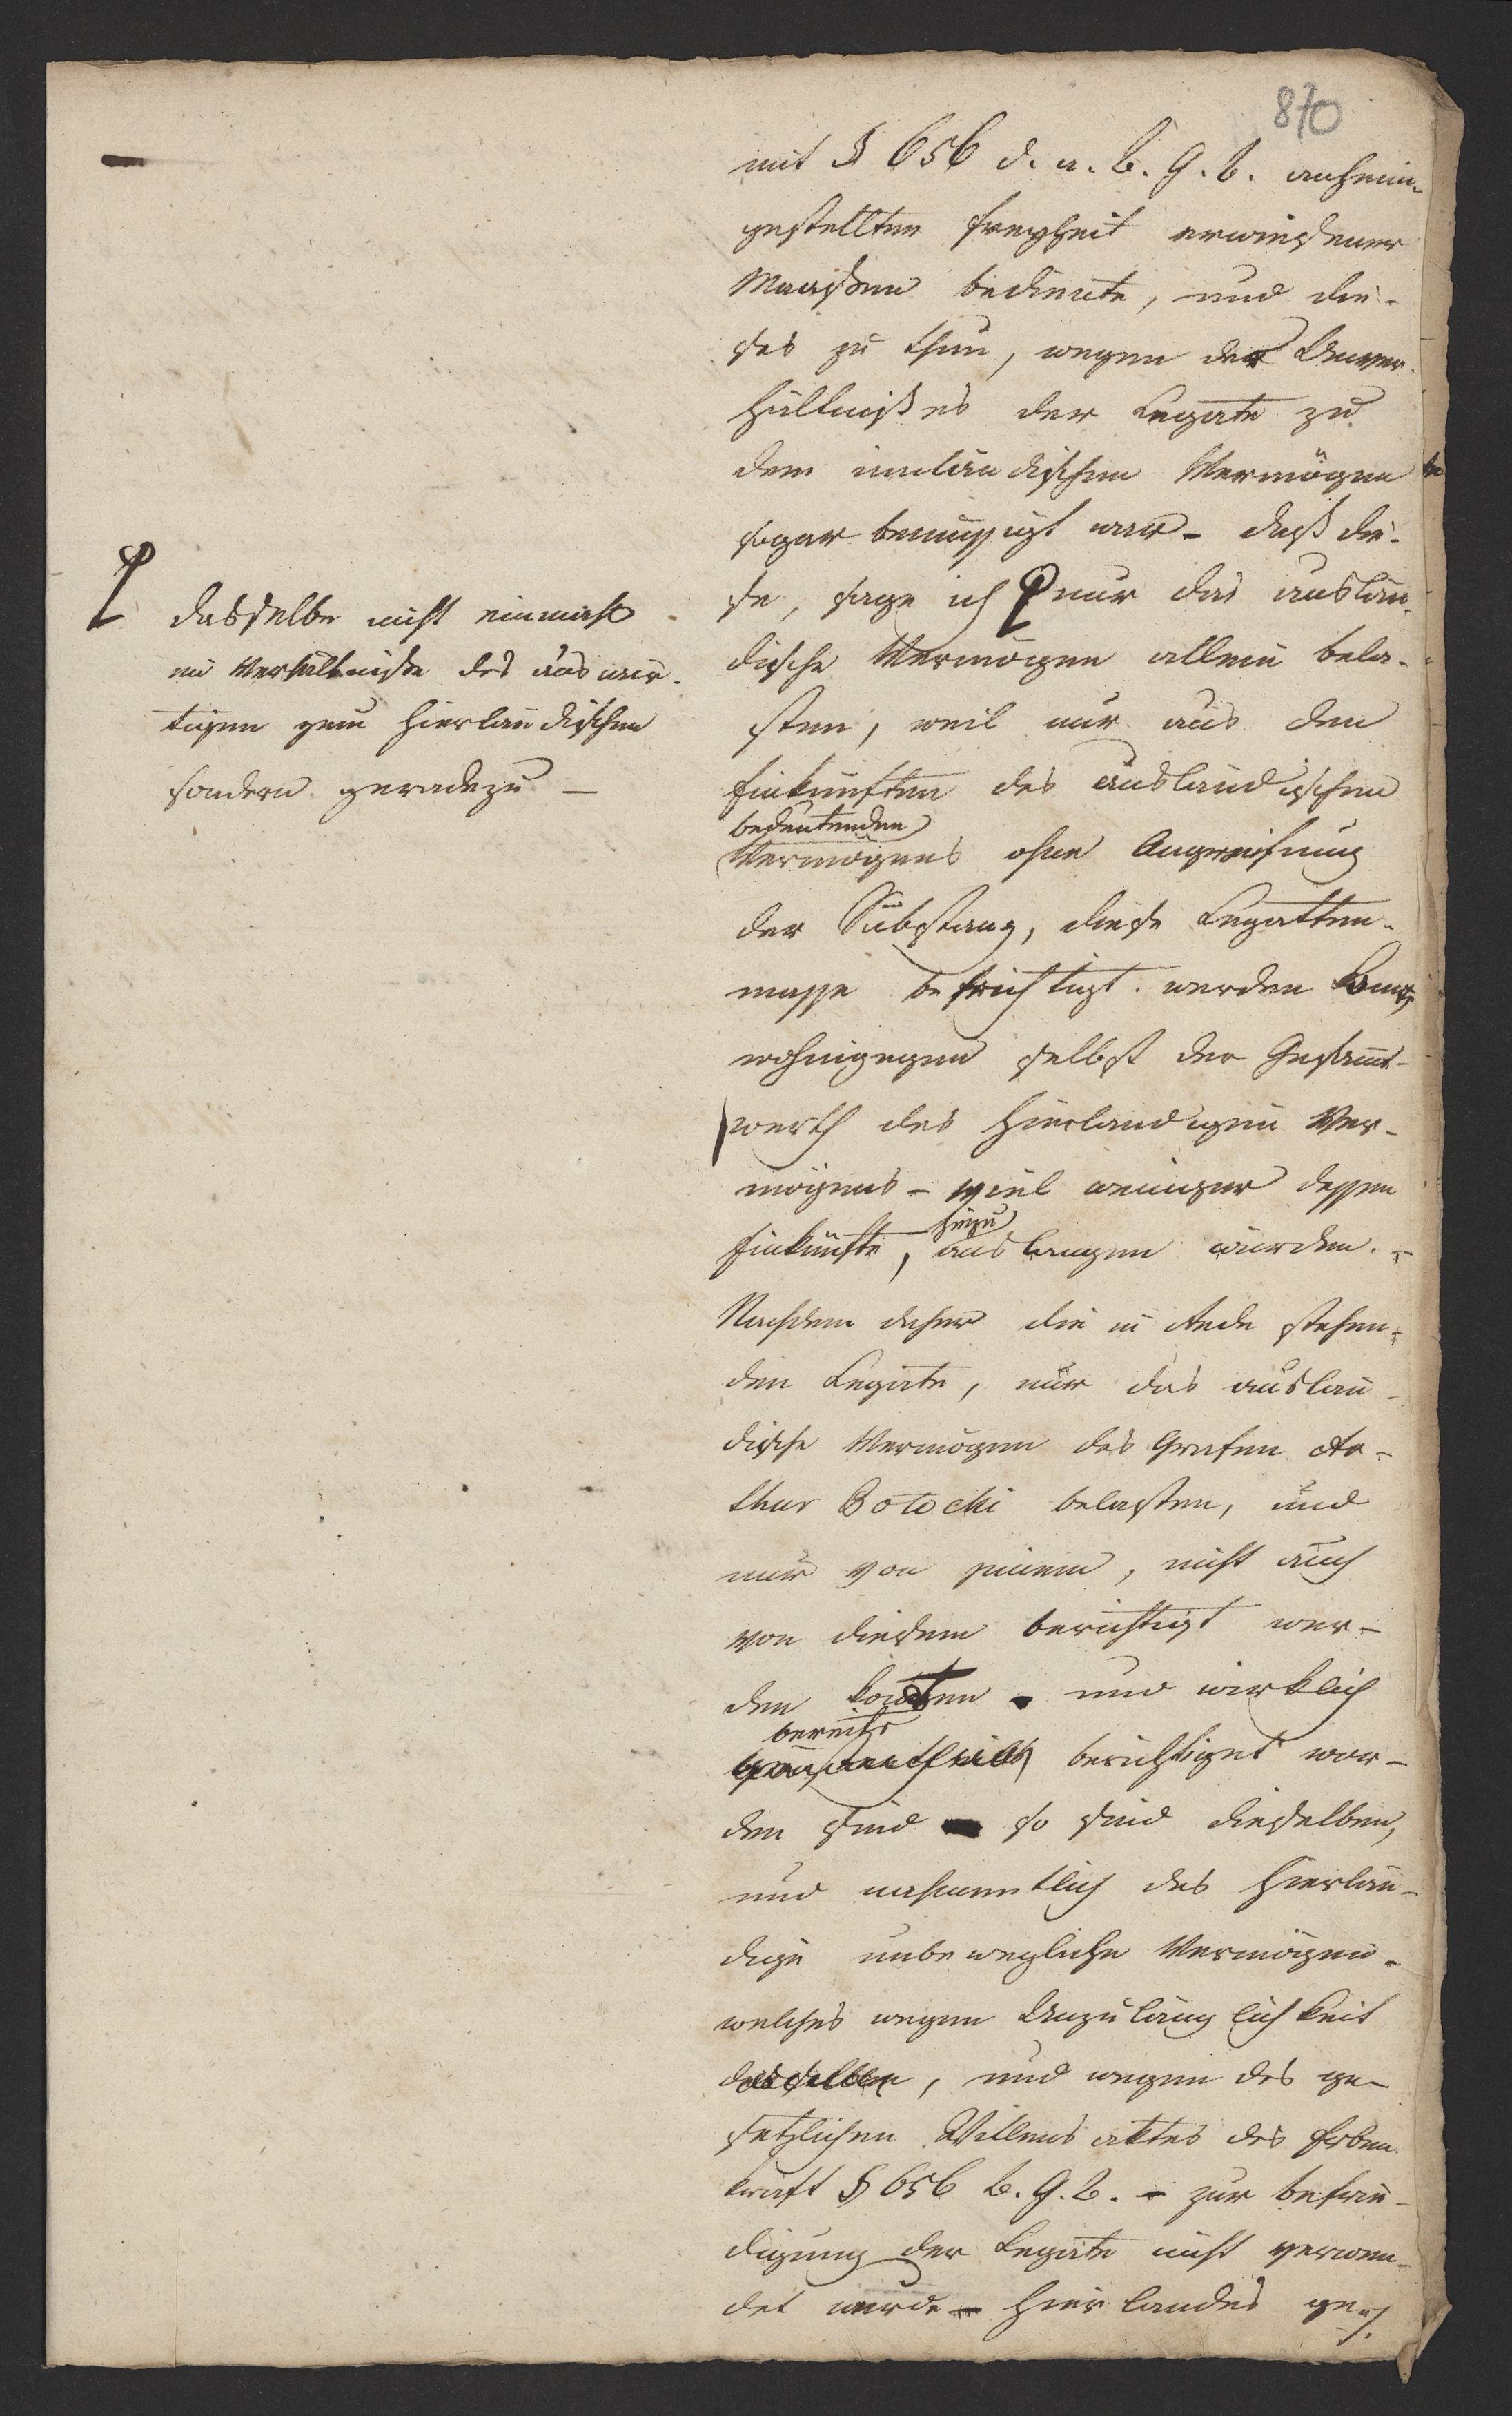 870
mit § 656 d. a. b. G. b. anheim-
gestellten Freyheit erwiesener
Maaßen bediente, und die-
ses zu thun, wegen des Unver-
hältnißes der Legate zu
dem inländischen Vermögen
sogar bemüssigt war - daß die-
se, sage ich nur das auslän-
dische Vermögen allein bela-
sten, weil nur aus den
Einkünften des ausländischen
bedeutenden
Vermögens ohne Angreifung
der Substanz, diese Legatten-
masse berichtigt werden
wohingegen selbst der Gesammt-
werth des hierländigen Ver-
mögens - viel weniger dessen
hiezu
Einkünfte, auslangen würden. -
Nachdem daher die in Rede stehen-
den Legate, nur das auslän-
dische Vermögen des Grafen Ar-
thur Potocki belasten, und
nur von jenem, nicht auch
von diesem berichtigt wer-
den konten - und wirklich
bereits
berichtiget wor-
den sind so sind dieselben,
und nahmentlich das hierlän-
dige unbewegliche Vermögen -
welches wegen Unzulänglichkeit
desselben, und wegen des ge-
setzlichen Willens aktes des Erben
kraft § 656 b. G. b. - zur befrie-
digung der Legate nicht verwen-
det wurde - hier landes
dasselbe nicht einmahl
im Verhältniße des auswär-
tigen zum hierländischen
sondern geradezu -